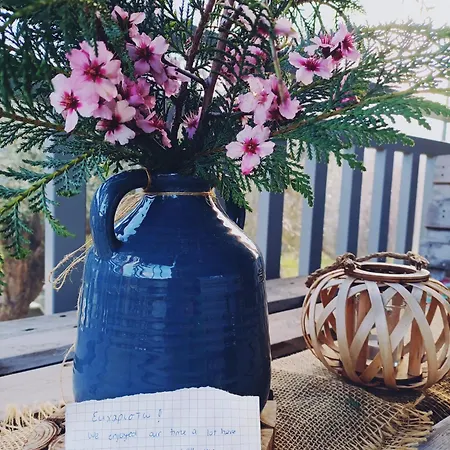 Ευχαριστώ!
We enjoyed our time a lot here